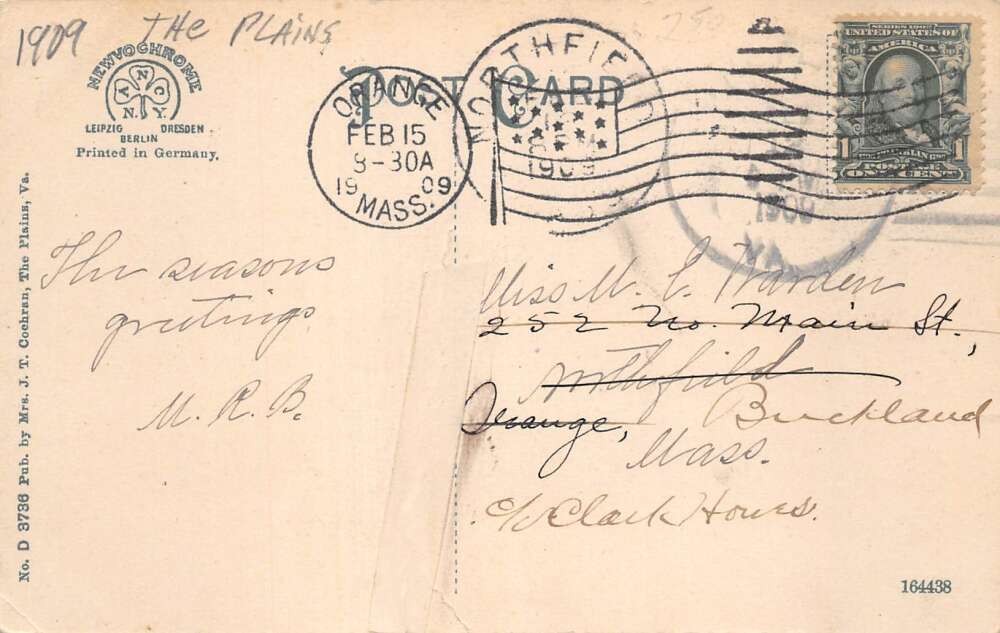 1909 THE PLAINS
NEWVOCHROME
N
A O
N.Y.
LEIPZIG DRESDEN
BERLIN
Printed in Germany.
POST CARD
ORANGE
FEB 15
8-30A
19 09
MASS.
NORTHFIELD
1909
1909
VA.
SERIES 1902
UNITED STATES OF
AMERICA
1 1
POSTAGE
ONE CENT
No. D 3736 Pub. by Mrs. J. T. Cochran, The Plains, Va.
The seasons
greetings.
M. R. B.
Miss M. C. Warden
252 No. Main St.,
Northfield
Orange, Buckland
Mass.
c/o Clark Howes.
164438